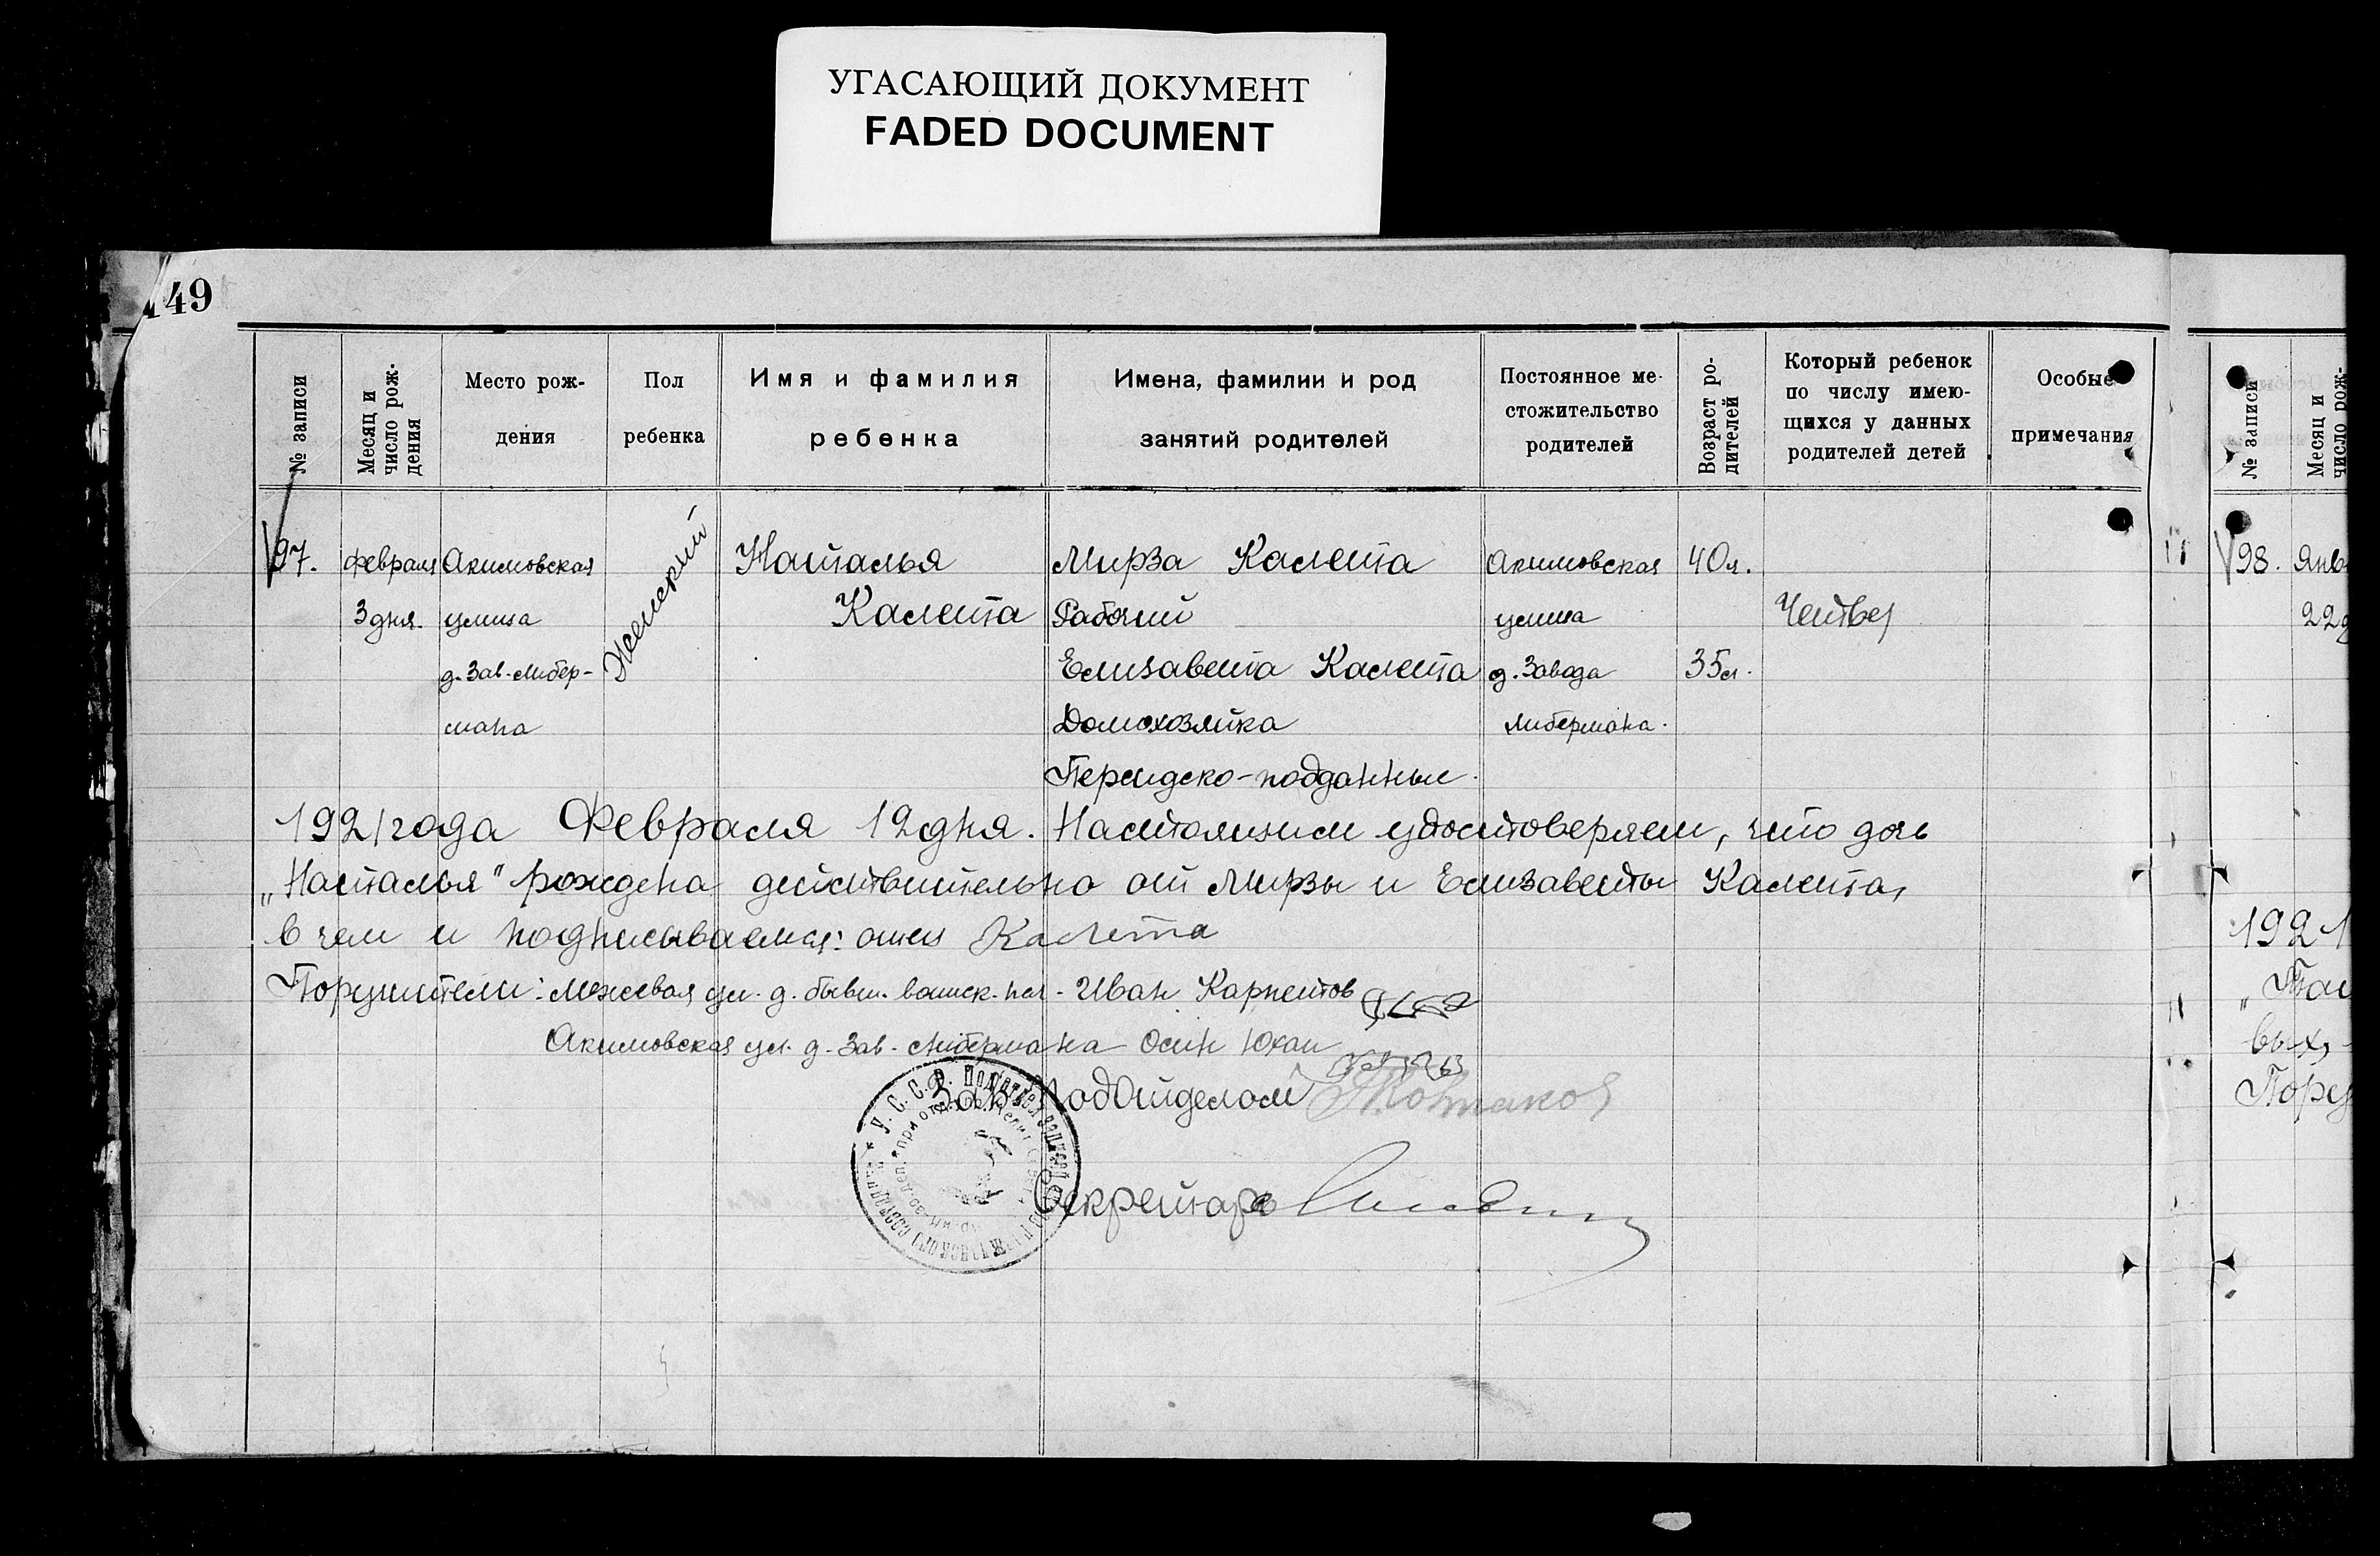 УГАСАЮЩИЙ ДОКУМЕНТ
FADED DOCUMENT
149
№ записи
Месяц и число рож-дения
Место рож-дения
Пол ребенка
Имя и фамилия ребенка
Имена, фамилии и род занятий родителей
Постоянное ме-стожительство родителей
Возраст ро-дителей
Который ребенок по числу имею-щихся у данных родителей детей
Особые примечания
97. Февраля Акимовская Женский Наталья Мирза Калета Акимовская 40 л.
3 дня. улица Калета Рабочий улица Четвер
д. Зав. Либер- Елизавета Калета д. Завода 35 л.
мана Домохозяйка Либермана.
Персидско-подданные.
1921 года Февраля 12 дня. Настоящим удостоверяем, что дочь
„Наталья" рождена действительно от Мирзы и Елизаветы Калета,
в чем и подписываемся: отец Калета
Поручители: Межевая ул. д. бывш. воинск. нач. Иван Карпетов
Акимовская ул. д. Зав. Либермана Осип Юхан
Зав. Подотделом
Секретарь
У.С.С.Р.
№ записи
Месяц и число рож-
98. Янв
22 д
1921
вых,
Пору